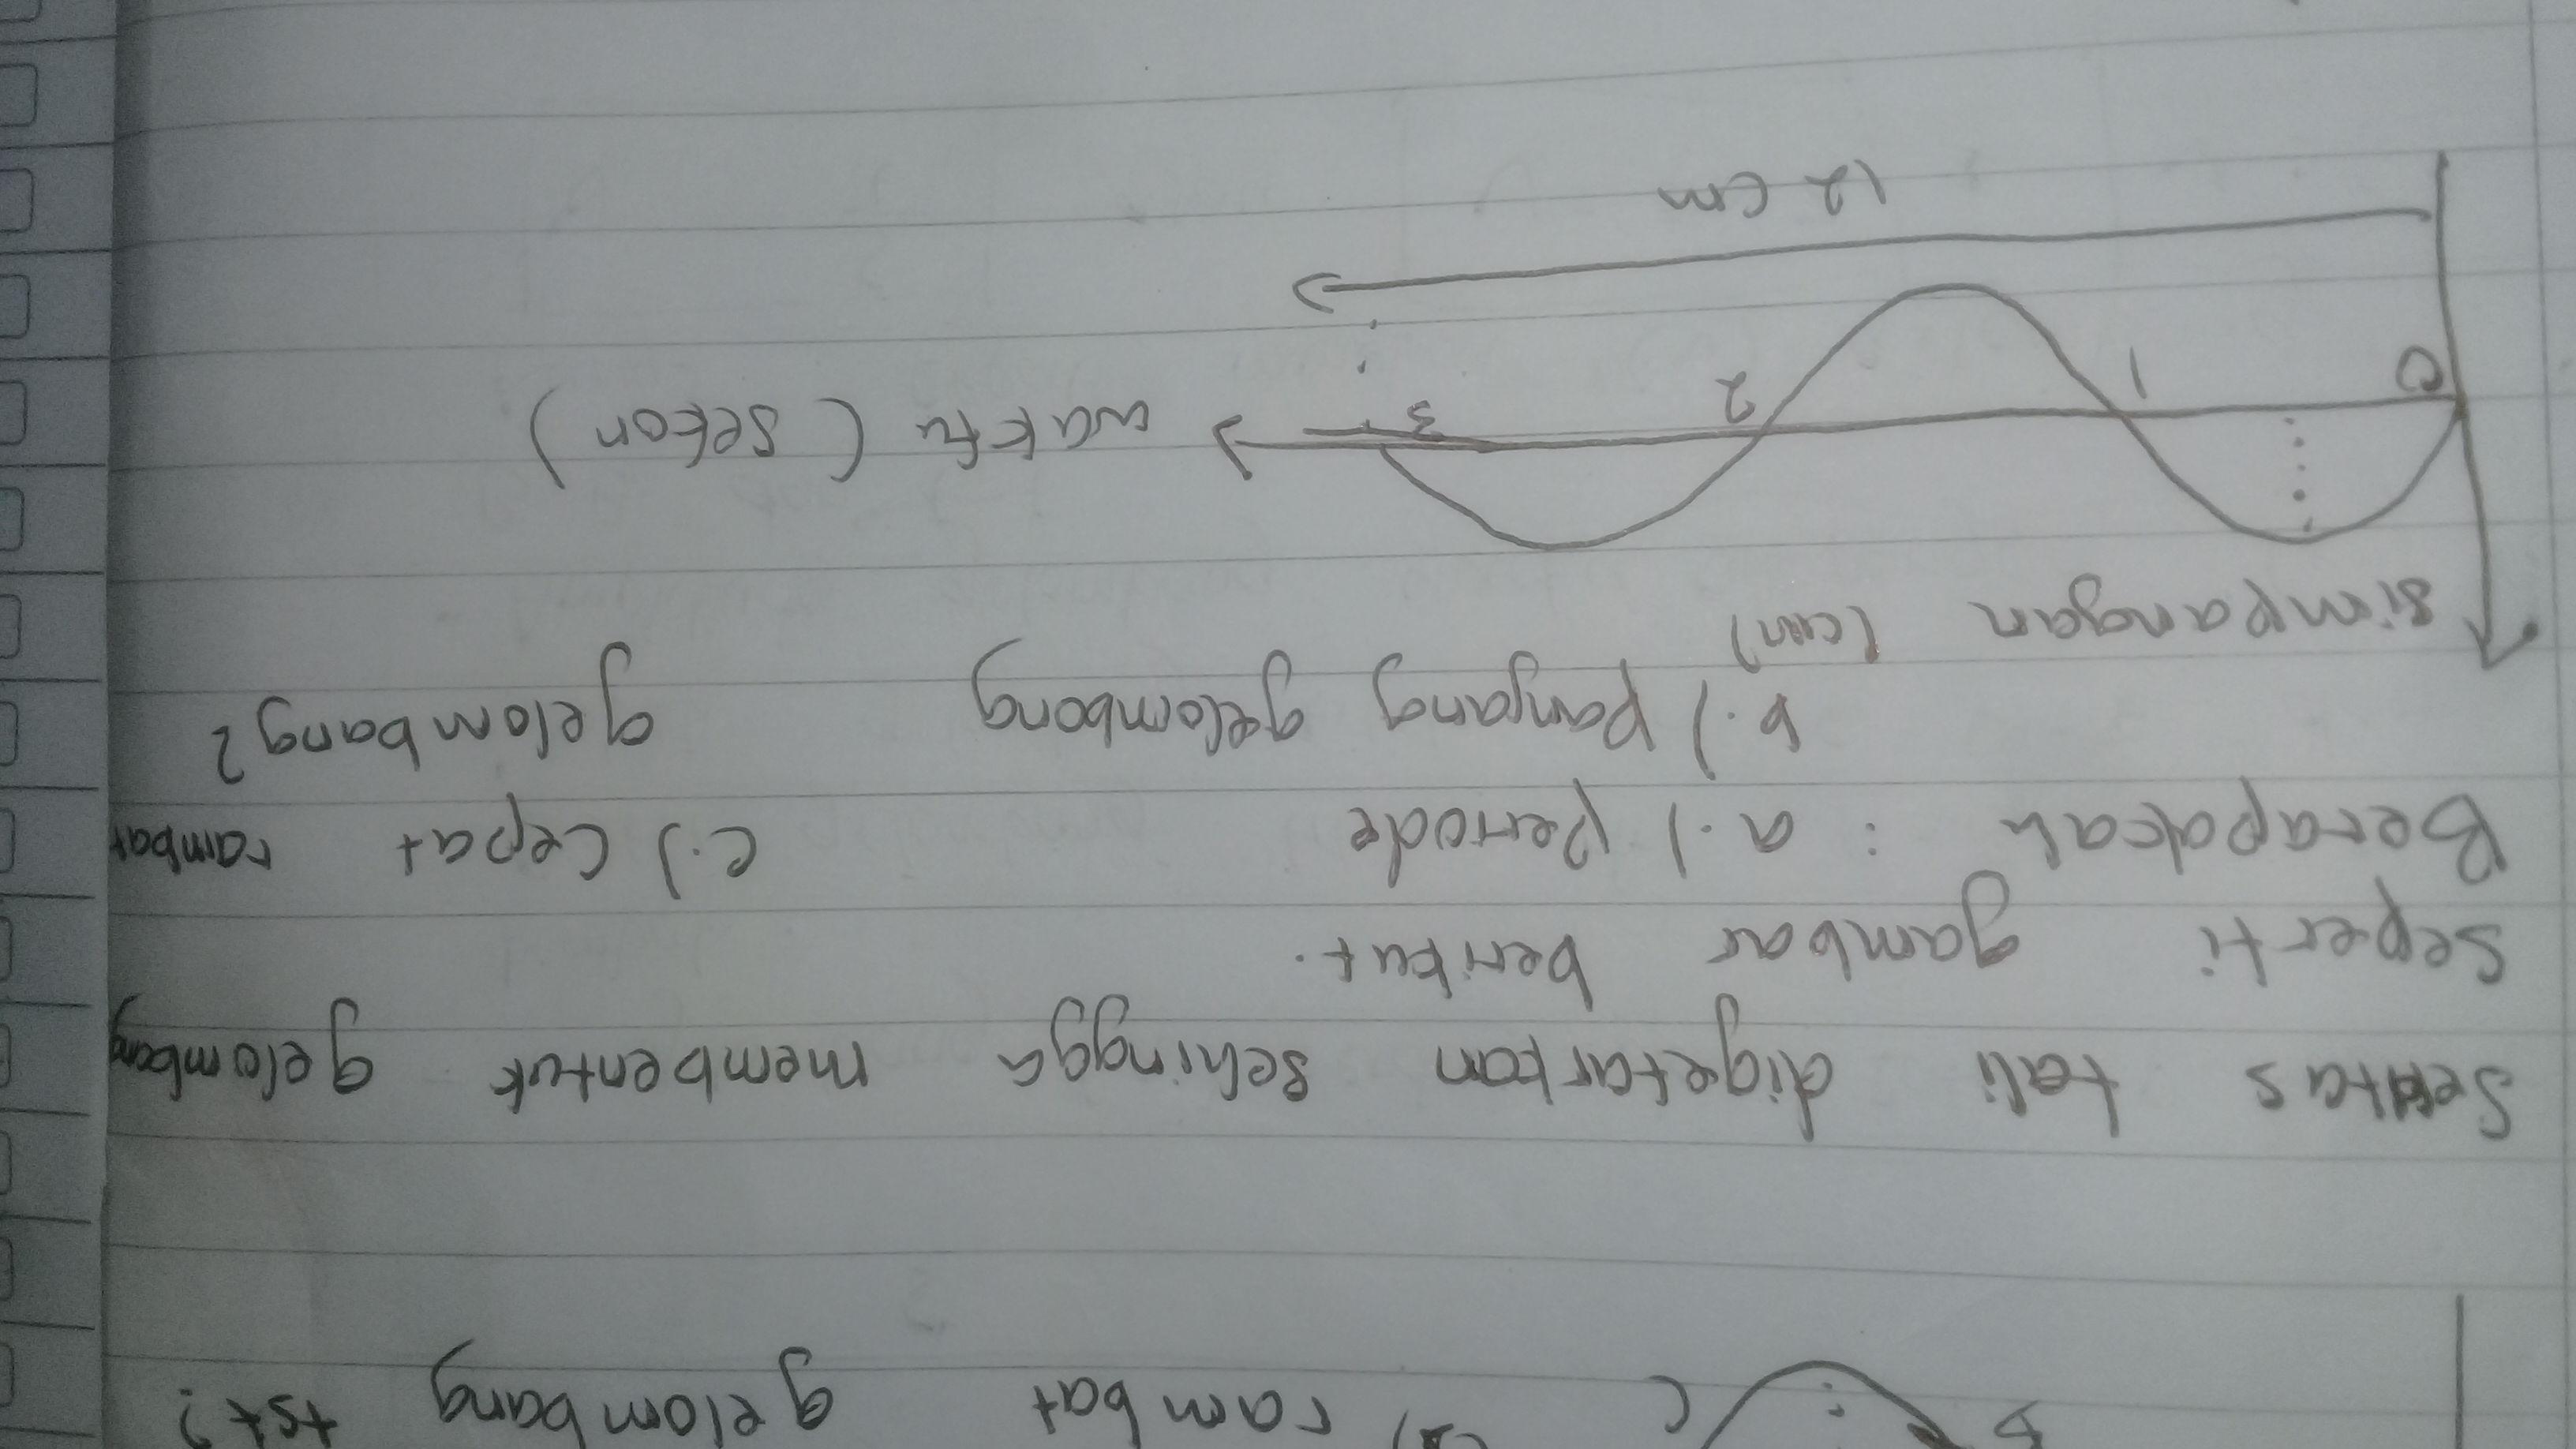 B C rambat gelombang tst?
Seutas tali digetarkan sehingga membentuk gelombang
seperti gambar berikut.
Berapakah : a.) periode c.) Cepat rambat
b.) Panjang gelombang gelombang?
simpangan (cm)
0 1 2 3 waktu (sekon)
12 cm